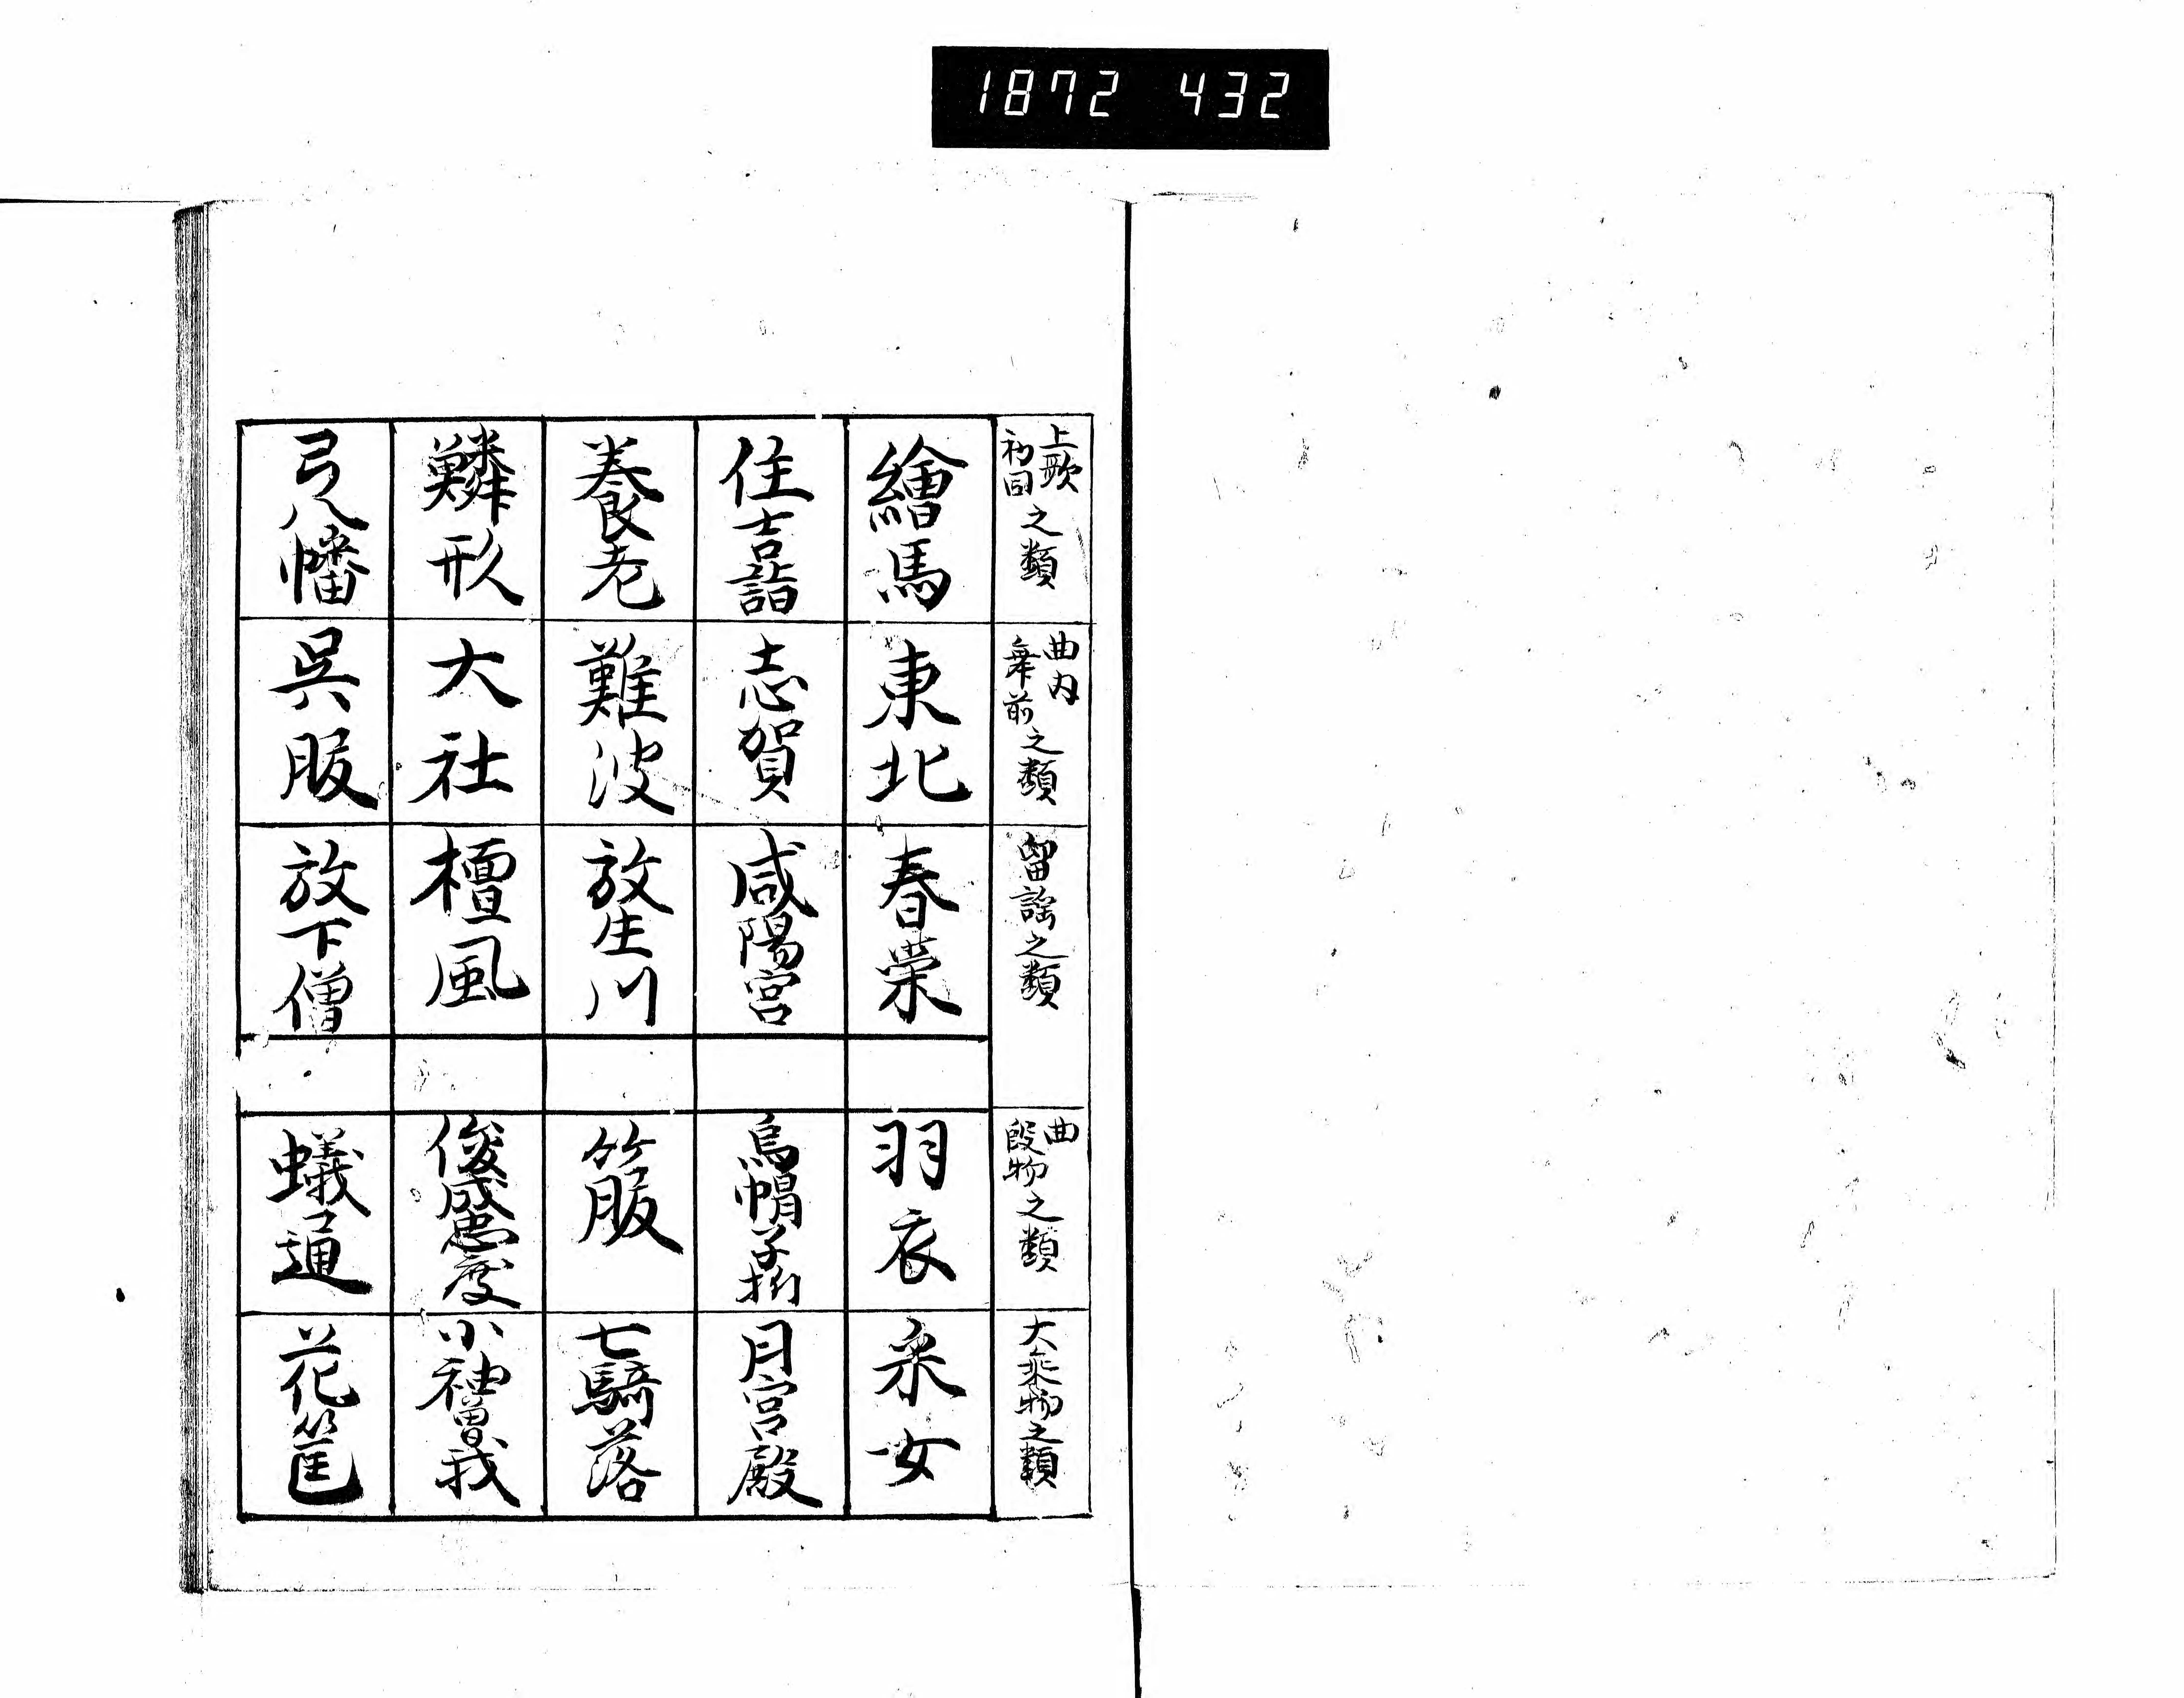 1872 432
上歌
初同之類
曲内
舞前之類
留謡之類
曲
段物之類
大乗物之類
繪馬
東北
春栄
羽衣
采女
住吉詣
志賀
咸陽宮
烏帽子折
月宮殿
養老
難波
放生川
箙
七騎落
鱗形
大社
檀風
俊成忠度
小袖曽我
弓八幡
呉服
放下僧
蟻通
花筐